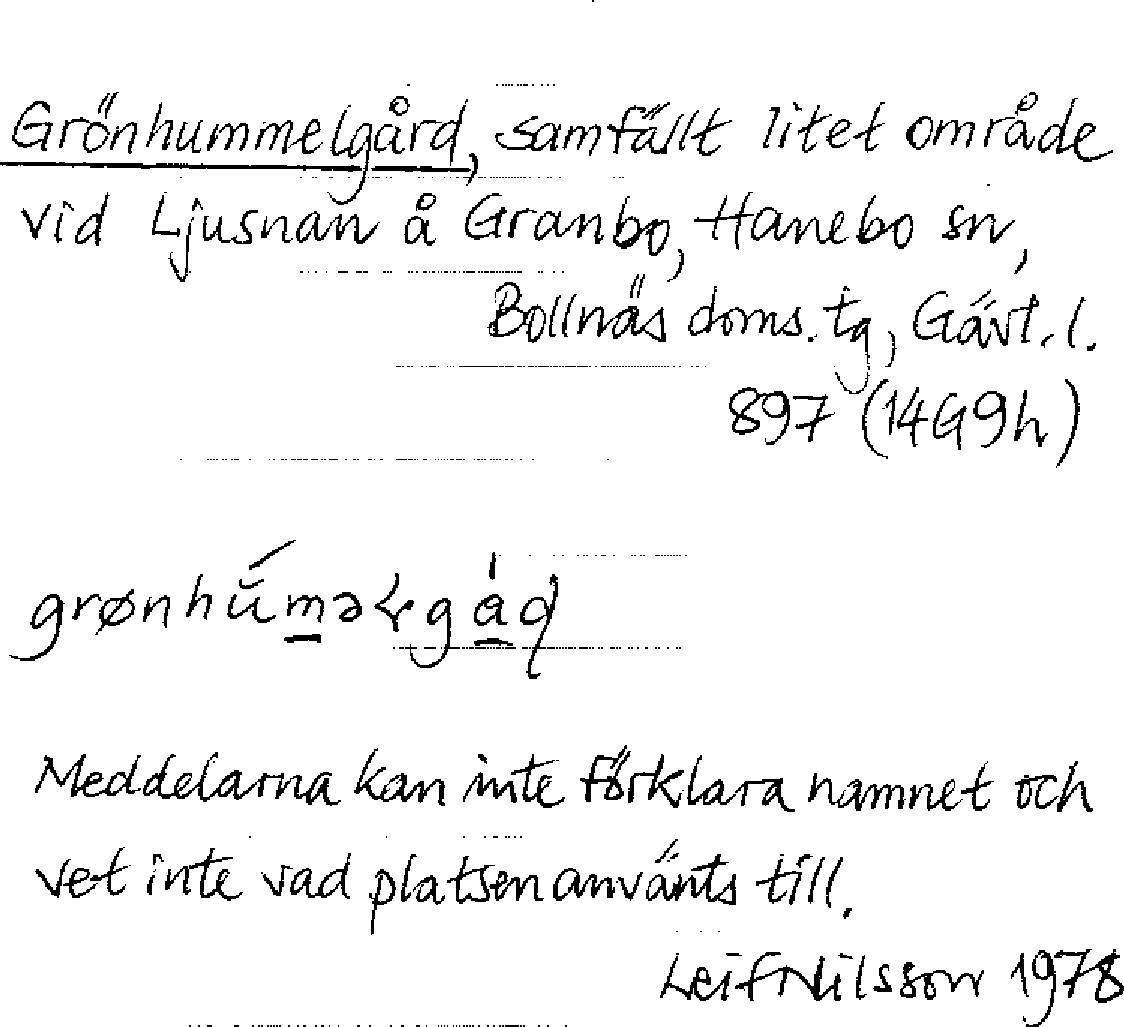 Grönhummelgård, samfällt litet område
vid Ljusnan å Granbo, Hanebo sn,
Bollnäs doms.tg, Gävl.l.
897 (14G9h)
Meddelarna kan inte förklara namnet och
vet inte vad platsen använts till.
Leif Nilsson 1978